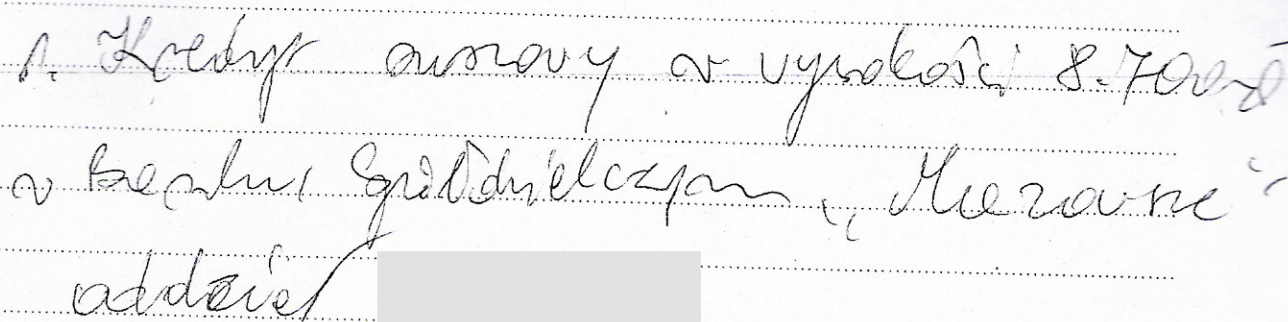 1. Kredyt suszowy w wysokości 8.700 zł
w Banku Spółdzielczym „Mazowsze"
oddział